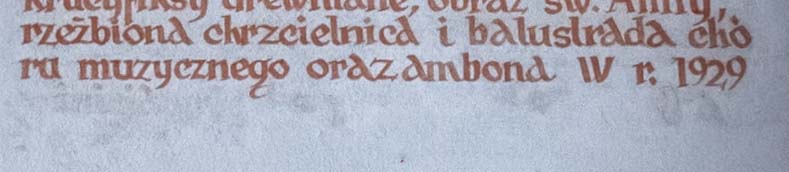 krucyfiksy drewniane, obraz św. Anny,
rzeźbiona chrzcielnica i balustrada chó
ru muzycznego oraz ambona W r. 1929